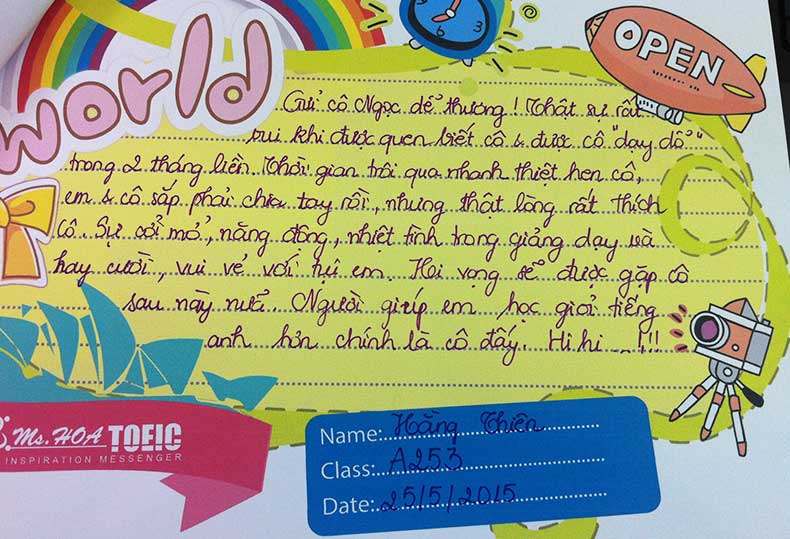 world
OPEN
Gửi cô Ngọc dễ thương! Thật sự rất
vui khi được quen biết cô & được cô "dạy dỗ"
trong 2 tháng liền. Thời gian trôi qua nhanh thiệt hen cô,
em & cô sắp phải chia tay rồi, nhưng thật lòng rất thích
cô. Sự cởi mở, năng động, nhiệt tình trong giảng dạy và
hay cười, vui vẻ với tụi em. Hi vọng sẽ được gặp cô
sau này nữa. Người giúp em học giỏi tiếng
anh hơn chính là cô đấy. Hi hi ...!!!
Ms. HOA TOEIC
INSPIRATION MESSENGER
Name: Hoàng Thiên
Class: A253
Date: 25/5/2015